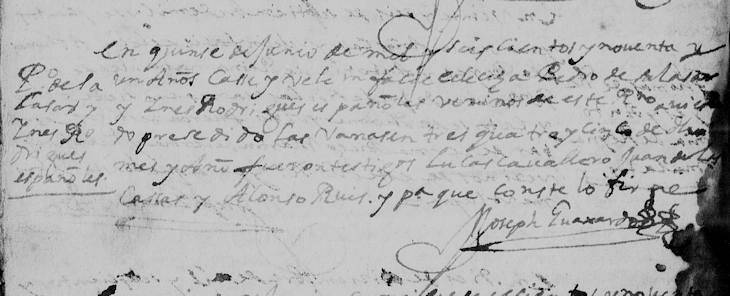 Po de la
Casas y
Ines Ro
drigues
españoles
En quinse de Junio de mil y seis cientos y noventa y
un años Case y vele in facie eclecia a Pedro de las
y Ines Rodrigues españoles vesinos de este Rno avien
do presedido las vanas en tres quatro y cinco de dho
mes y año fueron testigos Lucas Cavallero Juan de las
Casas y Alonso Ruis. y pa que conste lo firme
Joseph Guaxardo